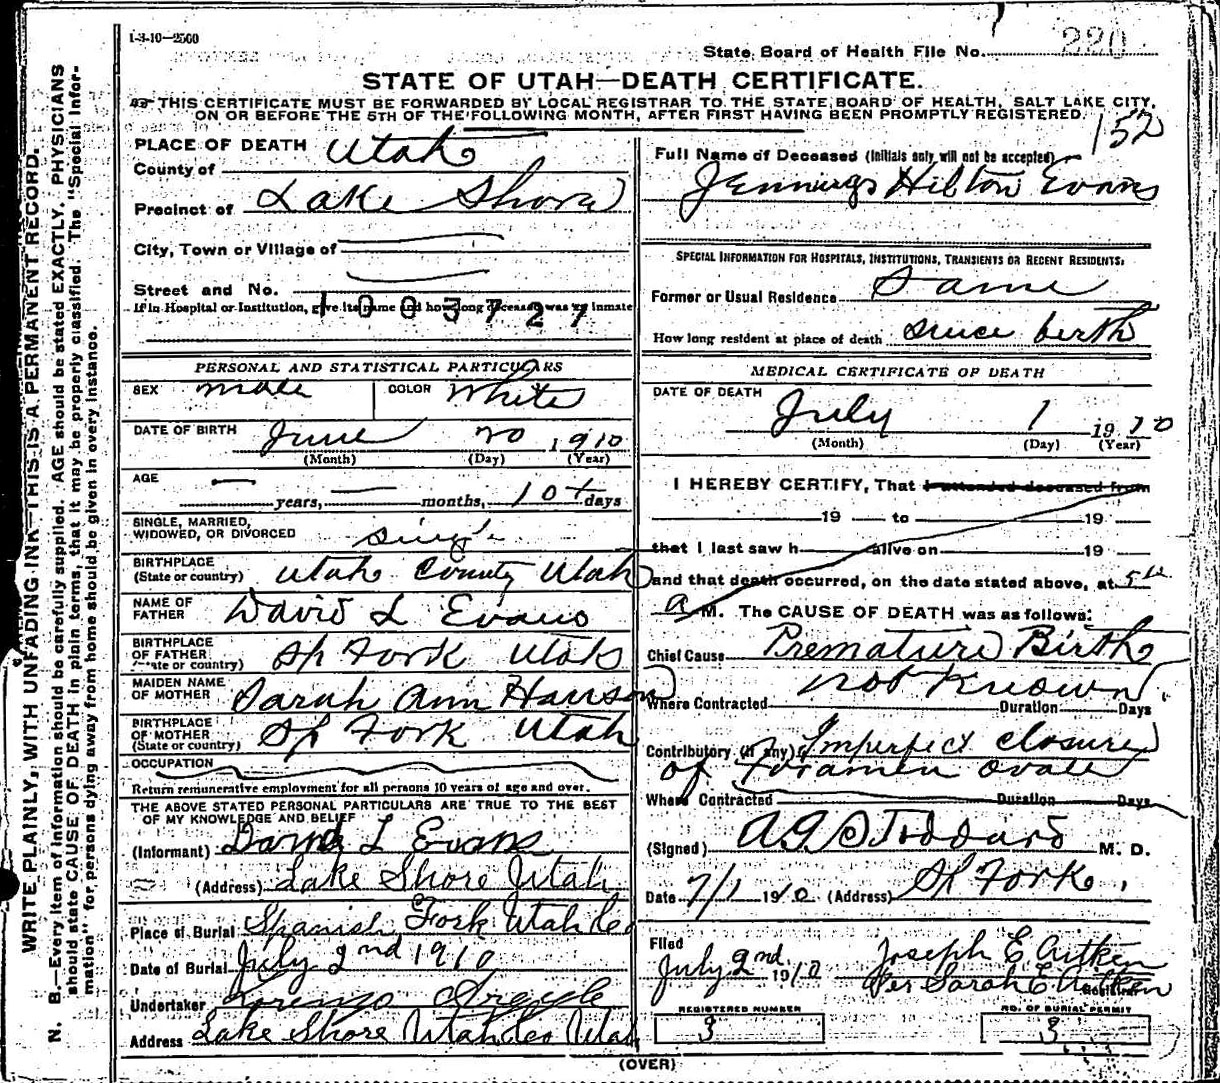 1-3-10-2500
State Board of Health File No. 220
STATE OF UTAH—DEATH CERTIFICATE.
THIS CERTIFICATE MUST BE FORWARDED BY LOCAL REGISTRAR TO THE STATE BOARD OF HEALTH, SALT LAKE CITY,
ON OR BEFORE THE 5TH OF THE FOLLOWING MONTH, AFTER FIRST HAVING BEEN PROMPTLY REGISTERED.
152
WRITE PLAINLY, WITH UNFADING INK—THIS IS A PERMANENT RECORD.
N. B.—Every item of information should be carefully supplied. AGE should be stated EXACTLY. PHYSICIANS
should state CAUSE OF DEATH in plain terms, that it may be properly classified. The "Special Infor-
mation" for persons dying away from home should be given in every instance.
PLACE OF DEATH
County of Utah
Precinct of Lake Shore
City, Town or Village of
Street and No.
If in Hospital or Institution, give its name and how long deceased was an inmate
1003727
PERSONAL AND STATISTICAL PARTICULARS
SEX male COLOR White
DATE OF BIRTH June 20 1910
(Month) (Day) (Year)
AGE — years, — months, 10 + days
SINGLE, MARRIED,
WIDOWED, OR DIVORCED single
BIRTHPLACE
(State or country) Utah County Utah
NAME OF
FATHER David L Evans
BIRTHPLACE
OF FATHER
(State or country) Sp Fork Utah
MAIDEN NAME
OF MOTHER Sarah Ann Hanson
BIRTHPLACE
OF MOTHER
(State or country) Sp Fork Utah
OCCUPATION
Return remunerative employment for all persons 10 years of age and over.
THE ABOVE STATED PERSONAL PARTICULARS ARE TRUE TO THE BEST
OF MY KNOWLEDGE AND BELIEF
(Informant) David L Evans
(Address) Lake Shore Utah
Place of Burial Spanish Fork Utah Co
Date of Burial July 2nd 1910
Undertaker Lorenzo Argyle
Address Lake Shore Utah Co Utah
Full Name of Deceased (Initials only will not be accepted)
Jennings Hilton Evans
SPECIAL INFORMATION FOR HOSPITALS, INSTITUTIONS, TRANSIENTS OR RECENT RESIDENTS.
Former or Usual Residence Same
How long resident at place of death since birth
MEDICAL CERTIFICATE OF DEATH
DATE OF DEATH
July 1 1910
(Month) (Day) (Year)
I HEREBY CERTIFY, That I attended deceased from
19 to 19
that I last saw h alive on 19
and that death occurred, on the date stated above, at 5
a M. The CAUSE OF DEATH was as follows:
Chief Cause Premature Birth
not known
Where Contracted Duration Days
Contributory (if any) Imperfect closure
of Foramen ovale
Where Contracted Duration Days
(Signed) A G Stoddard M. D.
Date 7/1 1910 (Address) Sp Fork.
Filed
July 2nd 1910 Joseph E. Aitken
Per Sarah E Aitken
Registrar
REGISTERED NUMBER
3
NO. OF BURIAL PERMIT
3
(OVER)